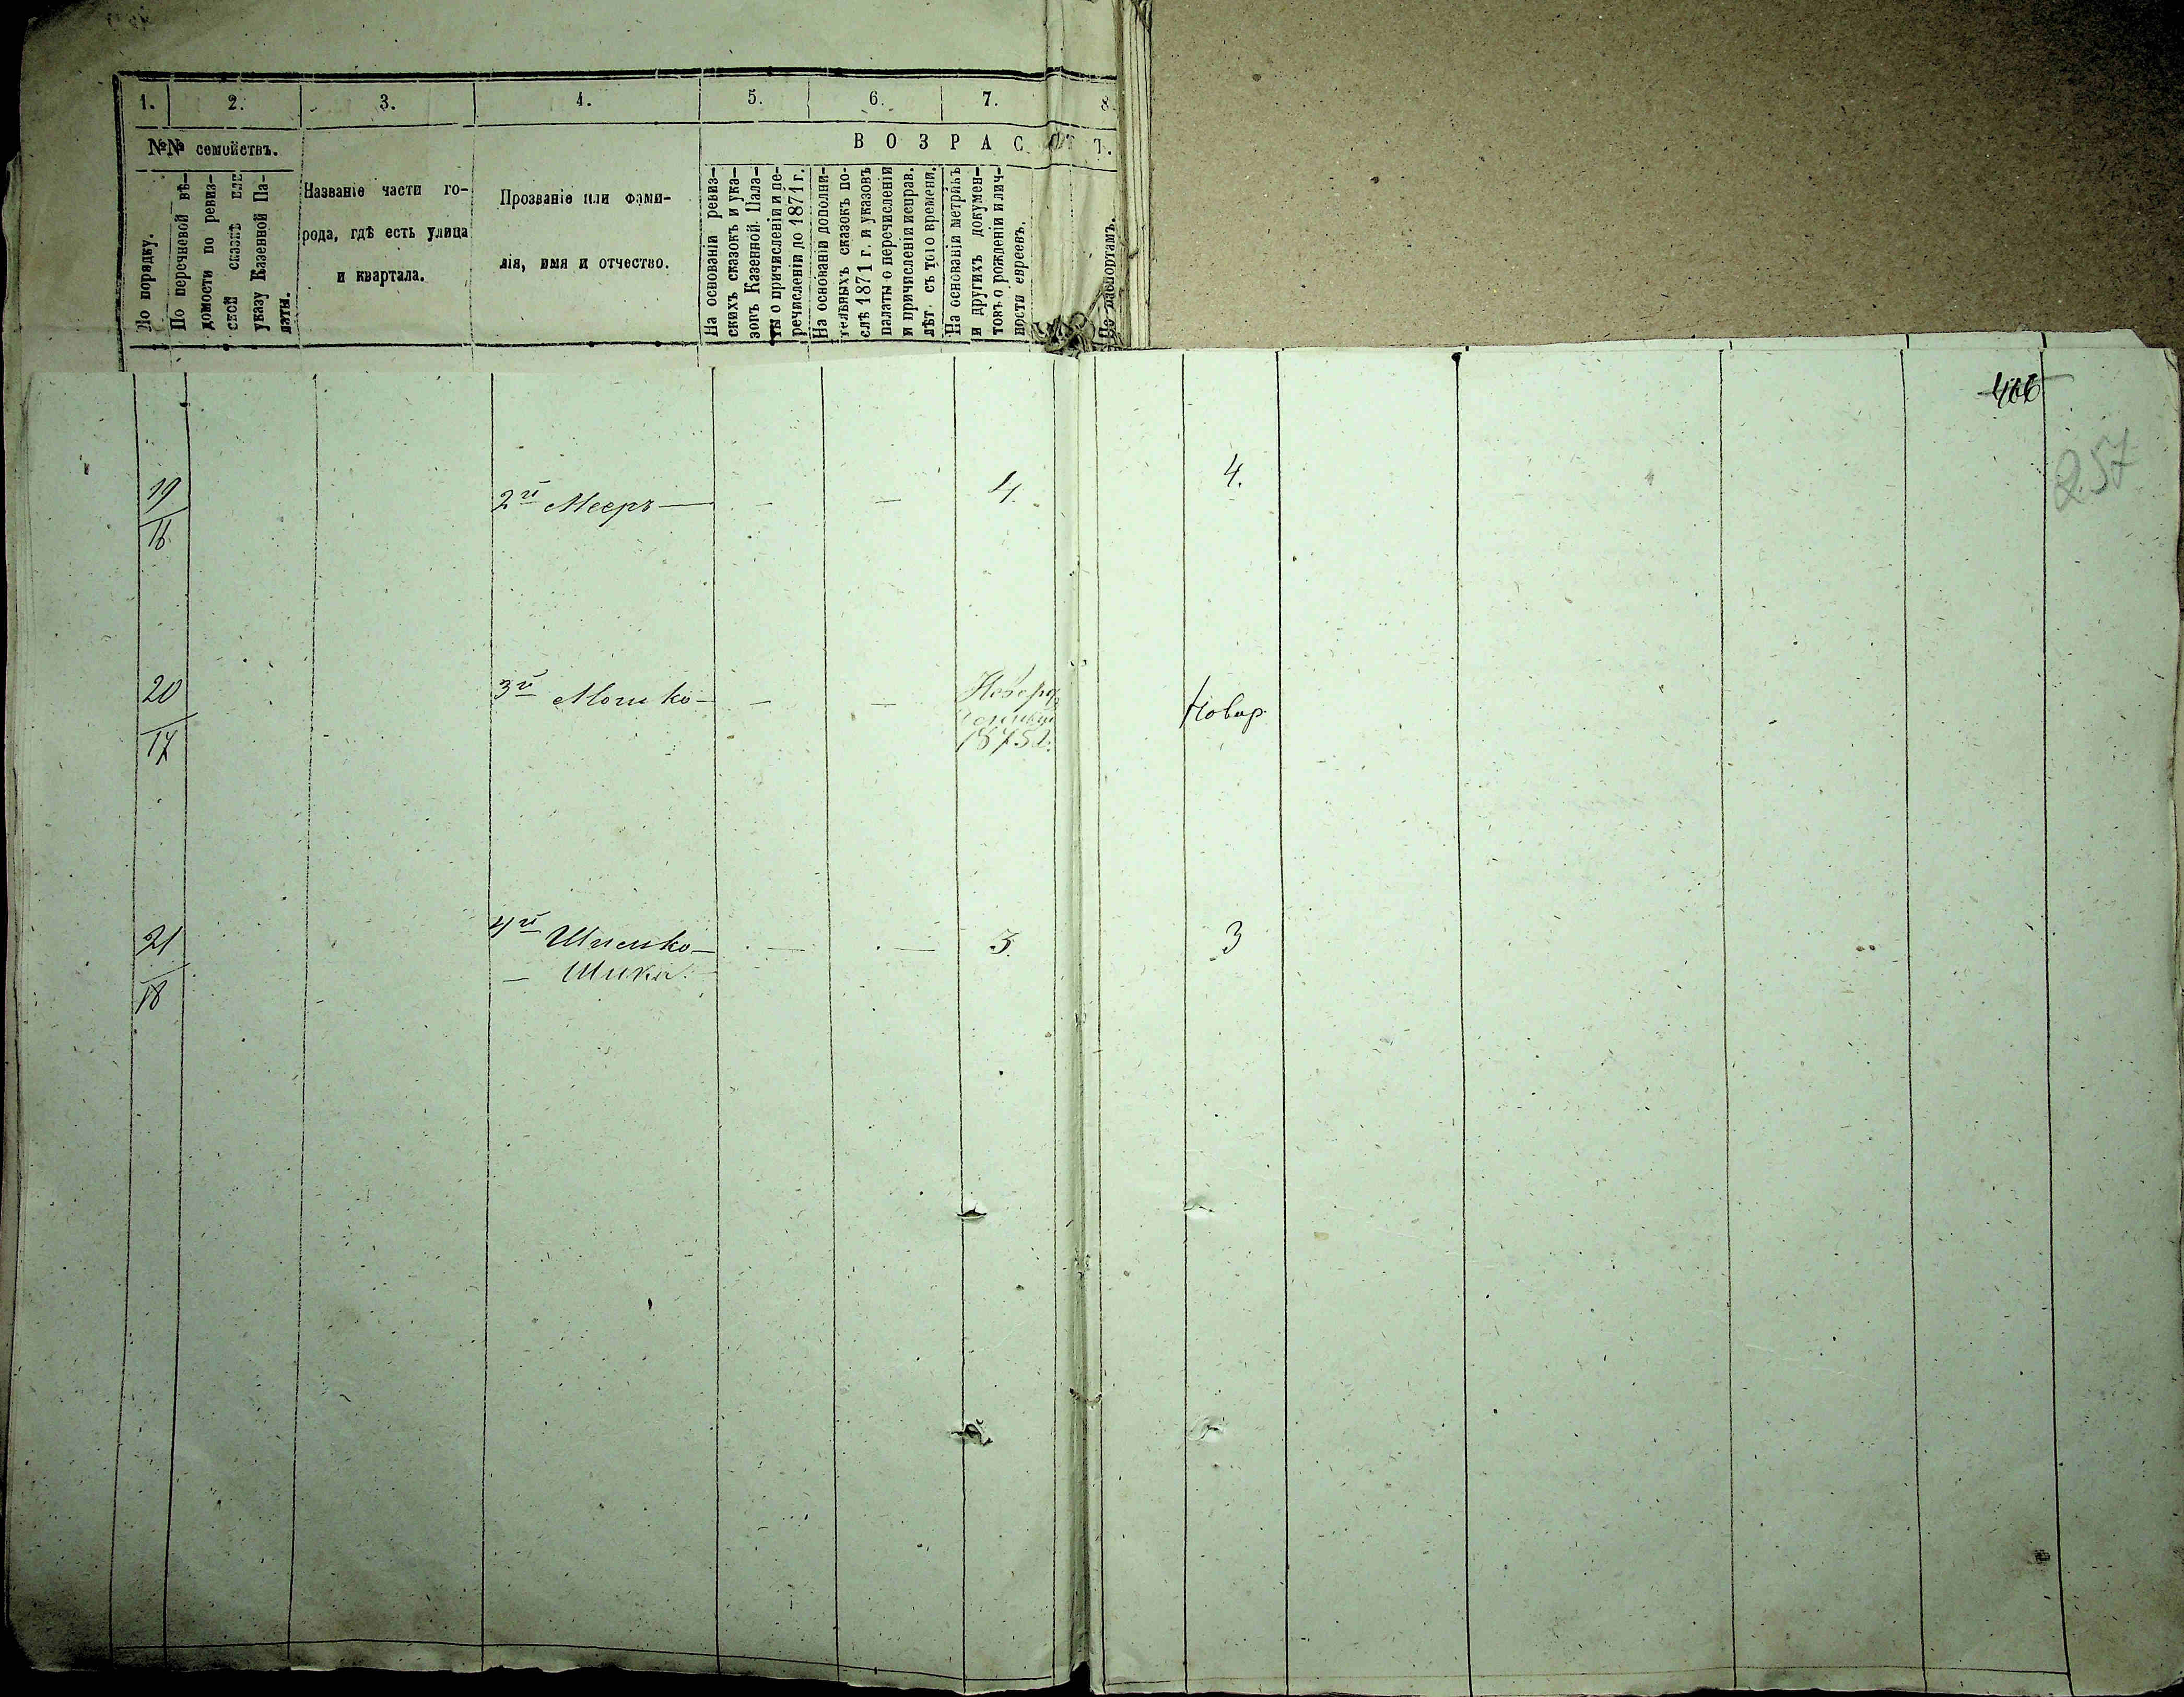 1. 2. 3. 4. 5. 6. 7. 8.
№№ семействъ.
В О З Р А С Т Ъ.
По порядку.
По перечневой вѣ-
домости по ревиз-
ской сказкѣ или
указу Казенной Па-
латы.
Названіе части го-
рода, гдѣ есть улица
и квартала.
Прозваніе или фами-
лія, имя и отчество.
На основаніи ревиз-
скихъ сказокъ и ука-
зовъ Казенной Пала-
ты о причисленіи и пе-
речисленіи до 1871 г.
На основаніи дополни-
тельныхъ сказокъ по-
слѣ 1871 г. и указовъ
палаты о перечисленіи
и причисленіи исправ.
лѣт. съ того времени.
На основаніи метрикъ
и другихъ докумен-
товъ о рожденіи и лич-
ности евреевъ.
По паспортамъ.
406
257
19/16 2й Мееръ — - — 4. 4.
20/17 3й Мошко - — — 1875 г.
21/18 4й Шлемко - — — 3. 3
— Шика.